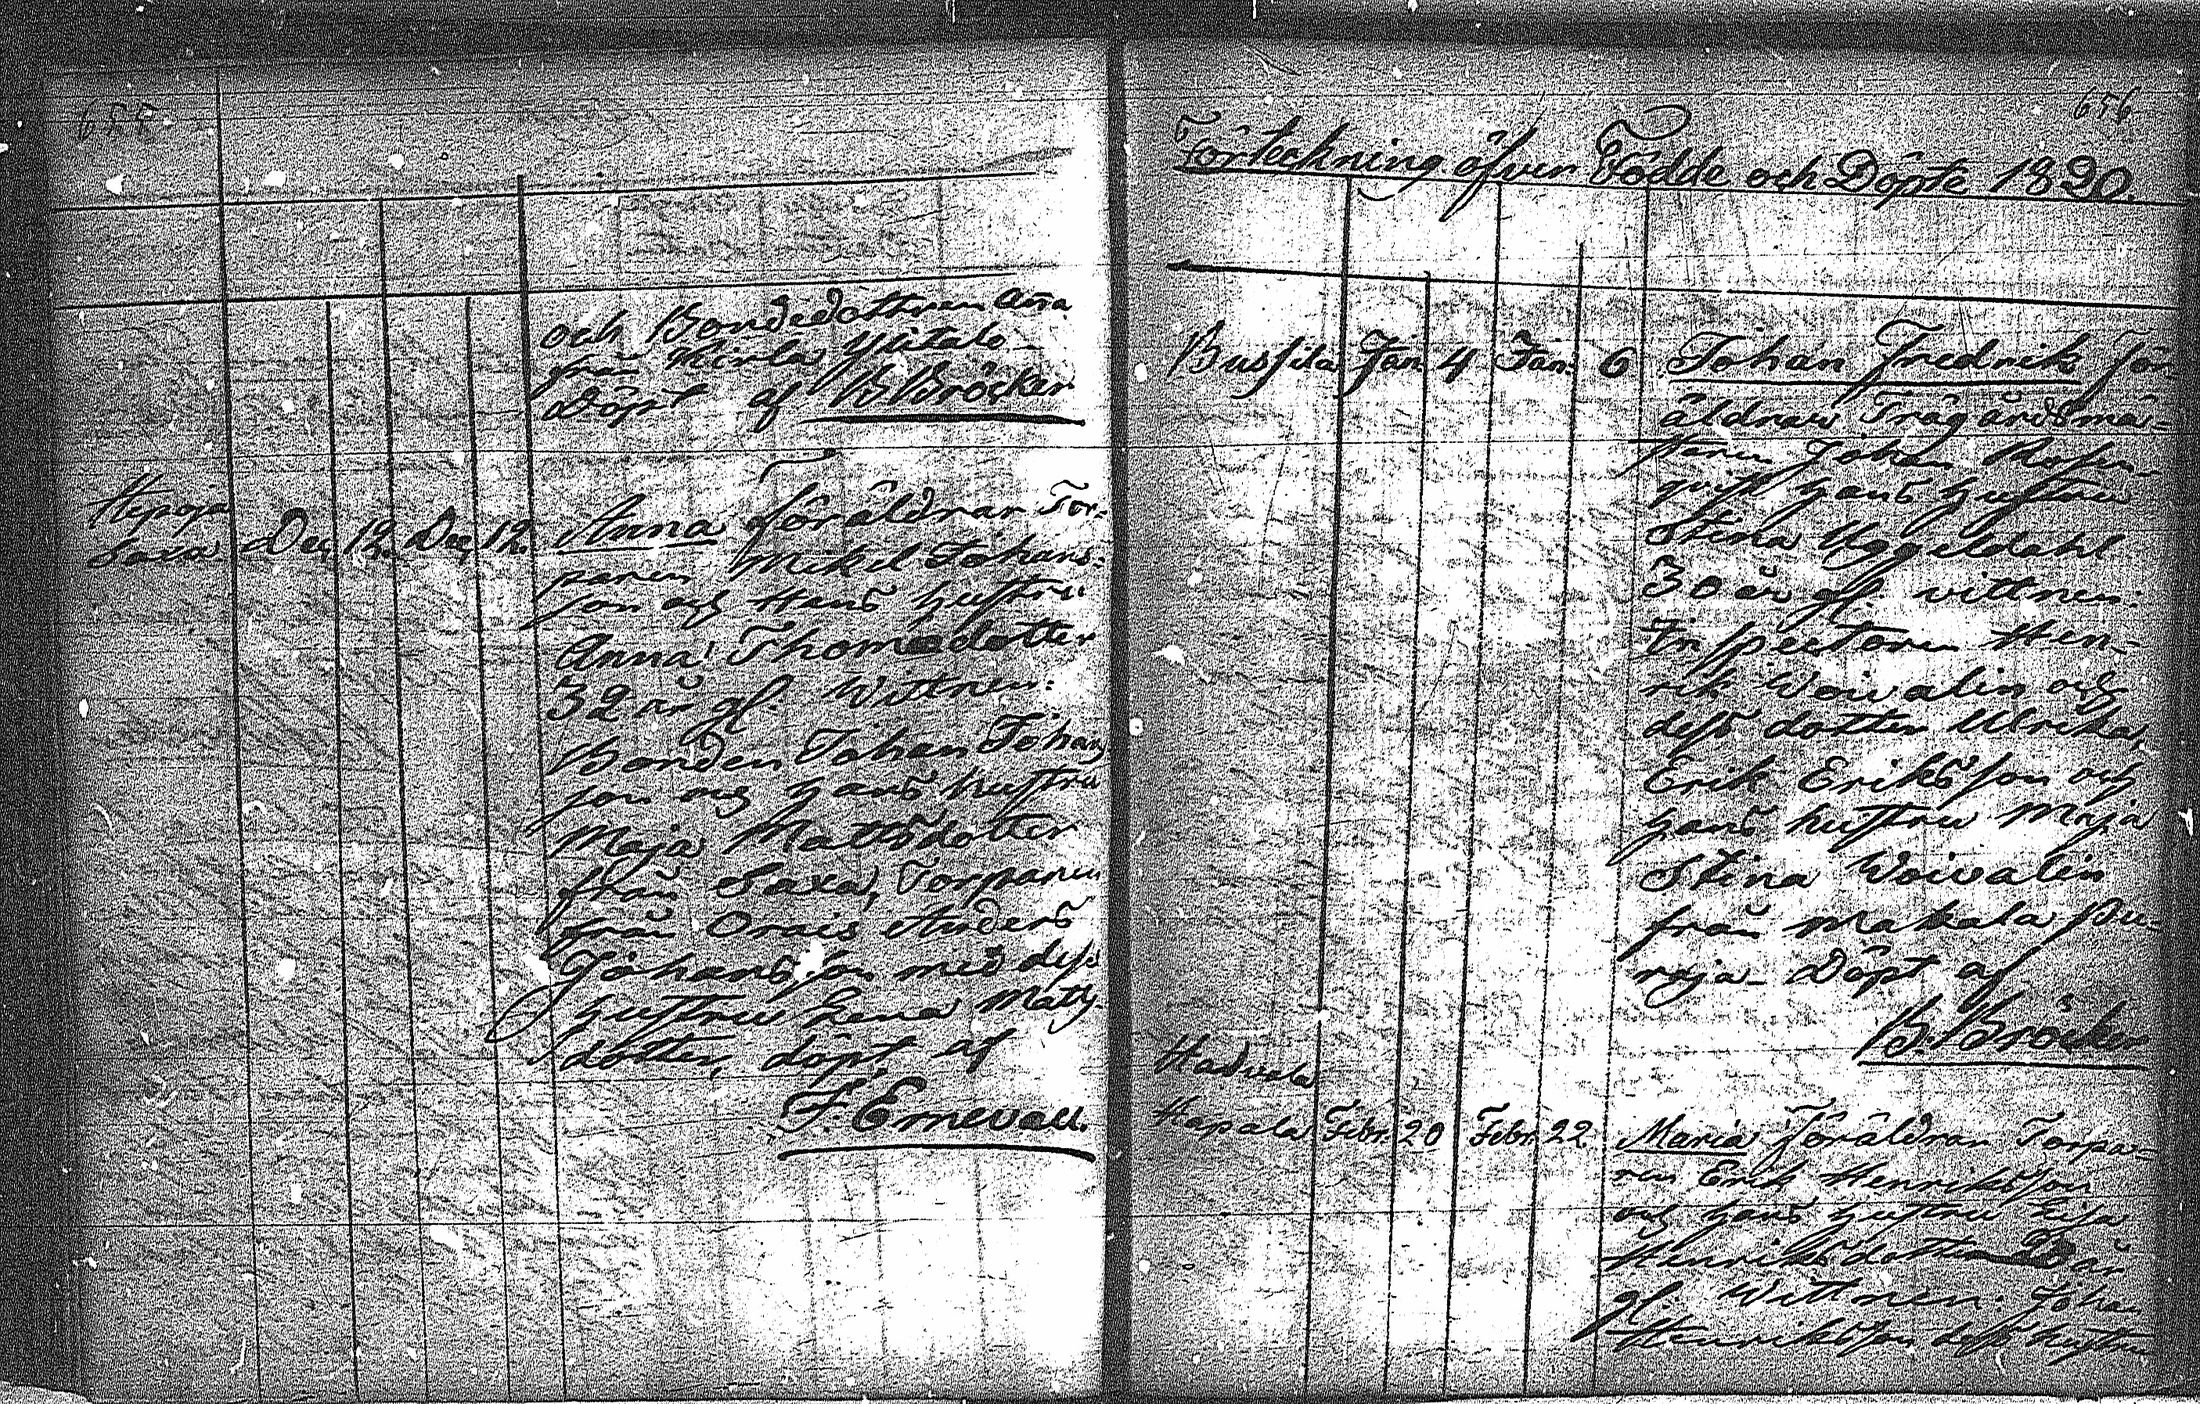 655
och Bondedottren Aña
från Kirla Ylitalo
Döpt af B Bröcker
Hepoja
Saxa Dec. 12. Dec. 12. Anna Föräldrar Tor-
paren Mikel Johans-
son och Hans hustru
Anna Thomædotter
32 år gl. Wittnen:
Bonden Johan Johans
son och hans hustru
Maja Mattsdotter
från Saxa, Torparen
från Orais Anders
Johansson med dess
hustru Lena Matts
dotter, döpt af
F. Ernevall.
656
Förteckning öfver Födde och Döpte 1820.
Bussila Jan. 4 Jan. 6 Johan Fredrik För-
äldrar Trägårdsmä-
staren Johan Rosen-
qvist hans hustru
Stina Uggeldahl
30 år gl. vittnen:
Inspectoren Hen-
rik Woivalin och
dess dotter Ulrika,
Erik Eriksson och
hans hustru Maja
Stina Woivalin
från Makala Pu-
roja Döpt af
B. Bröcker
Hadvala
Hapala Febr. 20 Febr. 22 Maria Föräldrar Torpa-
ren Erik Henriksson
och hans hustru Lisa
Henriksdotter år
gl. Wittnen: Johan
Henriksson dess hustru